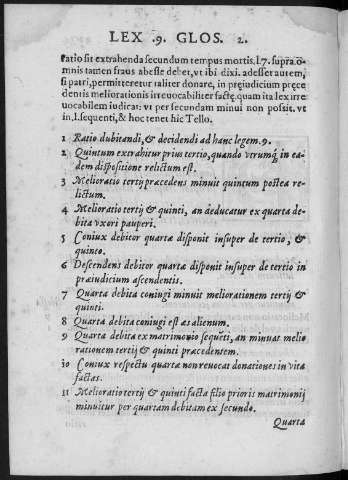 LEX .9. GLOS. 2.
ratio sit extrahenda secundum tempus mortis. l.7. supra.o-
mnis tamen fraus abesse debet, vt ibi dixi. adesset autem,
si patri, permitteretur taliter donare, in prejudicium prece
dentis meliorationis irreuocabiliter factę. quam ita lex irre
uocabilem iudicat: vt per secundam minui non possit. vt
in .l. sequenti, & hoc tenet hic Tello.
1 Ratio dubitandi, & decidendi ad hanc legem.9.
2 Quintum extrahitur prius tertio, quando vtrumq́; in ea-
dem dispositione relictum est.
3 Melioratio tertij præcedens minuit quintum postea re-
lictum.
4 Melioratio tertij & quinti, an deducatur ex quarta de-
bita vxori pauperi.
5 Coniux debitor quartæ disponit insuper de tertio, &
quinto.
6 Descendens debitor quartæ disponit insuper de tertio in
præiudicium ascendentis.
7 Quarta debita coniugi minuit meliorationem tertij &
quinti.
8 Quarta debita coniugi est æs alienum.
9 Quarta debita ex matrimonio sequēti, an minuat melio
rationem tertij & quinti præcedentem.
10 Coniux respectu quartæ non reuocat donationes in vita
factas.
11 Melioratio tertij & quinti facta filio prioris matrimonij
minuitur per quartam debitam ex secundo.
Quarta